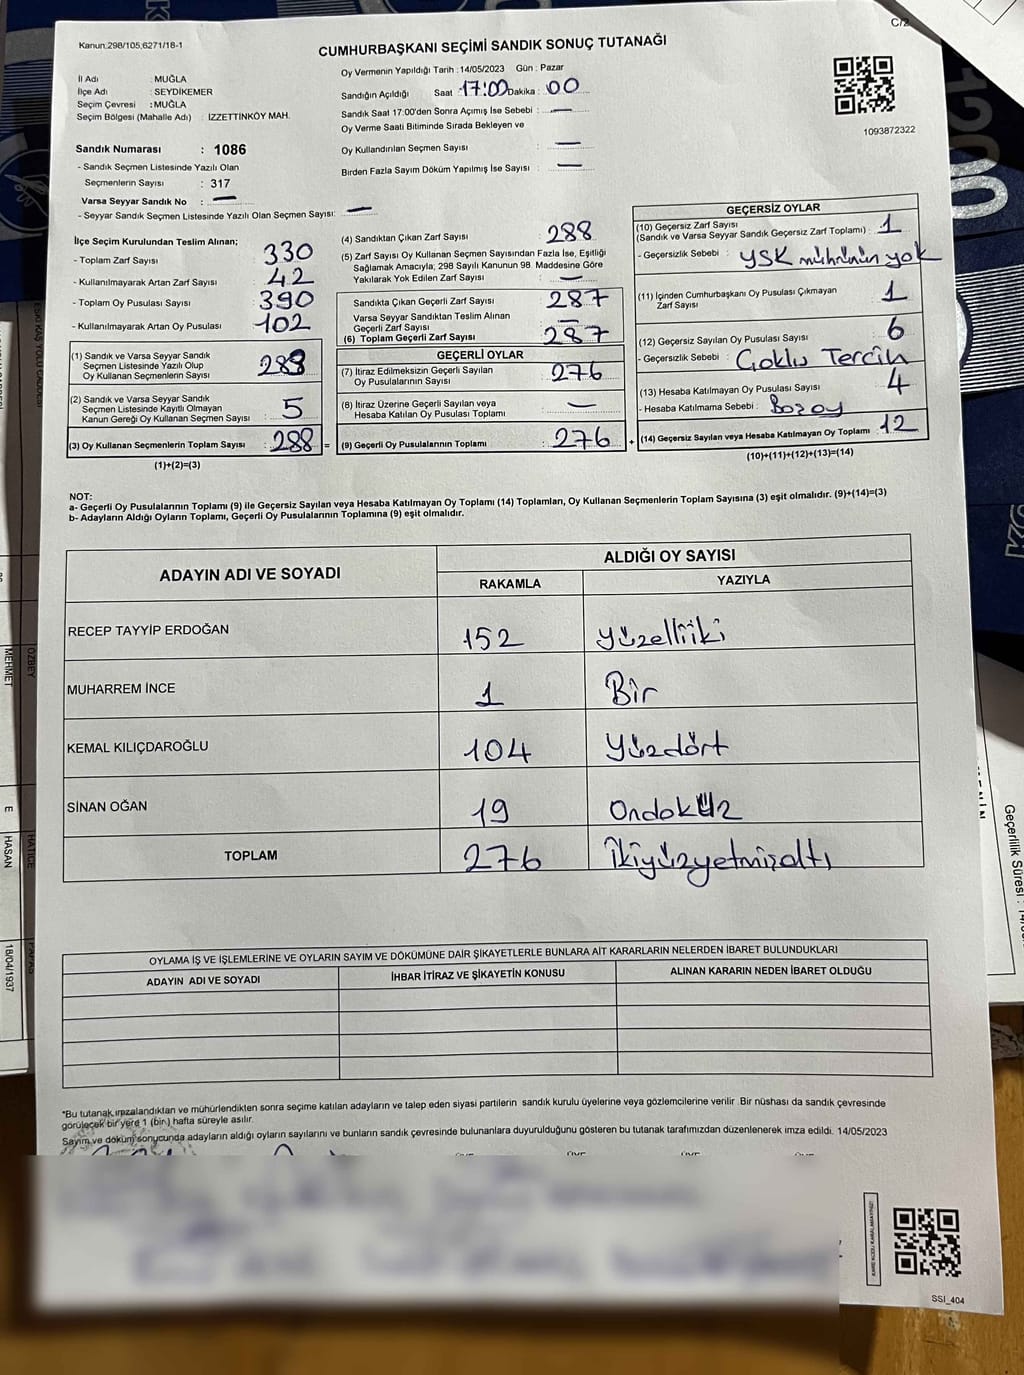 C/2
Kanun.298/105,6271/18-1
CUMHURBAŞKANI SEÇİMİ SANDIK SONUÇ TUTANAĞI
İl Adı : MUĞLA
İlçe Adı : SEYDİKEMER
Seçim Çevresi : MUĞLA
Seçim Bölgesi (Mahalle Adı) : İZZETTİNKÖY MAH.
Sandık Numarası : 1086
- Sandık Seçmen Listesinde Yazılı Olan
Seçmenlerin Sayısı : 317
Varsa Seyyar Sandık No : —
- Seyyar Sandık Seçmen Listesinde Yazılı Olan Seçmen Sayısı: —
Oy Vermenin Yapıldığı Tarih : 14/05/2023 Gün : Pazar
Sandığın Açıldığı Saat : 17:00 Dakika : 00
Sandık Saat 17:00'den Sonra Açımış İse Sebebi : —
Oy Verme Saati Bitiminde Sırada Bekleyen ve
Oy Kullandırılan Seçmen Sayısı : —
Birden Fazla Sayım Döküm Yapılmış İse Sayısı : —
1093872322
İlçe Seçim Kurulundan Teslim Alınan;
- Toplam Zarf Sayısı : 330
- Kullanılmayarak Artan Zarf Sayısı : 42
- Toplam Oy Pusulası Sayısı : 390
- Kullanılmayarak Artan Oy Pusulası : 102
(1) Sandık ve Varsa Seyyar Sandık
Seçmen Listesinde Yazılı Olup
Oy Kullanan Seçmenlerin Sayısı
(2) Sandık ve Varsa Seyyar Sandık
Seçmen Listesinde Kayıtlı Olmayan
Kanun Gereği Oy Kullanan Seçmen Sayısı : 5
(3) Oy Kullanan Seçmenlerin Toplam Sayısı : 288 =
(1)+(2)=(3)
(4) Sandıktan Çıkan Zarf Sayısı 288
(5) Zarf Sayısı Oy Kullanan Seçmen Sayısından Fazla İse, Eşitliği
Sağlamak Amacıyla; 298 Sayılı Kanunun 98. Maddesine Göre
Yakılarak Yok Edilen Zarf Sayısı : —
Sandıkta Çıkan Geçerli Zarf Sayısı 287
Varsa Seyyar Sandıktan Teslim Alınan
Geçerli Zarf Sayısı —
(6) Toplam Geçerli Zarf Sayısı : 287
GEÇERLİ OYLAR
(7) İtiraz Edilmeksizin Geçerli Sayılan
Oy Pusulalarının Sayısı : 276
(8) İtiraz Üzerine Geçerli Sayılan veya
Hesaba Katılan Oy Pusulası Toplamı : —
(9) Geçerli Oy Pusulalarının Toplamı : 276 +
GEÇERSİZ OYLAR
(10) Geçersiz Zarf Sayısı
(Sandık ve Varsa Seyyar Sandık Geçersiz Zarf Toplamı) : 1
- Geçersizlik Sebebi : YSK mührünün yok
(11) İçinden Cumhurbaşkanı Oy Pusulası Çıkmayan
Zarf Sayısı : 1
(12) Geçersiz Sayılan Oy Pusulası Sayısı : 6
- Geçersizlik Sebebi : Çoklu Tercih
(13) Hesaba Katılmayan Oy Pusulası Sayısı : 4
- Hesaba Katılmama Sebebi : Boz oy
(14) Geçersiz Sayılan veya Hesaba Katılmayan Oy Toplamı : 12
(10)+(11)+(12)+(13)=(14)
NOT:
a- Geçerli Oy Pusulalarının Toplamı (9) ile Geçersiz Sayılan veya Hesaba Katılmayan Oy Toplamı (14) Toplamları, Oy Kullanan Seçmenlerin Toplam Sayısına (3) eşit olmalıdır. (9)+(14)=(3)
b- Adayların Aldığı Oyların Toplamı, Geçerli Oy Pusulalarının Toplamına (9) eşit olmalıdır.
ADAYIN ADI VE SOYADI ALDIĞI OY SAYISI
RAKAMLA YAZIYLA
RECEP TAYYİP ERDOĞAN 152 Yüzelliiki
MUHARREM İNCE 1 Bir
KEMAL KILIÇDAROĞLU 104 Yüzdört
SİNAN OĞAN 19 Ondokuz
TOPLAM 276 İkiyüzyetmişaltı
OYLAMA İŞ VE İŞLEMLERİNE VE OYLARIN SAYIM VE DÖKÜMÜNE DAİR ŞİKAYETLERLE BUNLARA AİT KARARLARIN NELERDEN İBARET BULUNDUKLARI
ADAYIN ADI VE SOYADI İHBAR İTİRAZ VE ŞİKAYETİN KONUSU ALINAN KARARIN NEDEN İBARET OLDUĞU
*Bu tutanak imzalandıktan ve mühürlendikten sonra seçime katılan adayların ve talep eden siyasi partilerin sandık kurulu üyelerine veya gözlemcilerine verilir. Bir nüshası da sandık çevresinde
görülecek bir yere 1 (bir) hafta süreyle asılır.
Sayım ve döküm sonucunda adayların aldığı oyların sayılarını ve bunların sandık çevresinde bulunanlara duyurulduğunu gösteren bu tutanak tarafımızdan düzenlenerek imza edildi. 14/05/2023
SSİ_404
Geçerlilik Süresi :
MEHMET
ÖZBEY
E
HASAN
HATİCE
18/04/1937